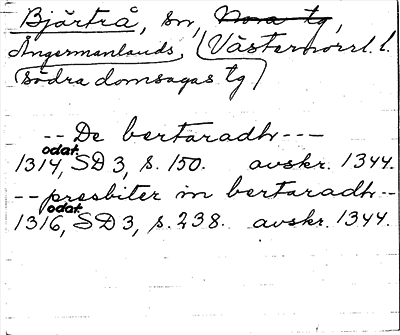 Bjärtrå, sn, Nora tg,
Ångermanlands, (Västernorrl. l.
södra domsagas tg)
-- De bertaradh ---
odat.
1314, SD 3, s. 150. avskr. 1344.
-- presbiter in bertaradh --
odat.
1316, SD 3, s. 238. avskr. 1344.